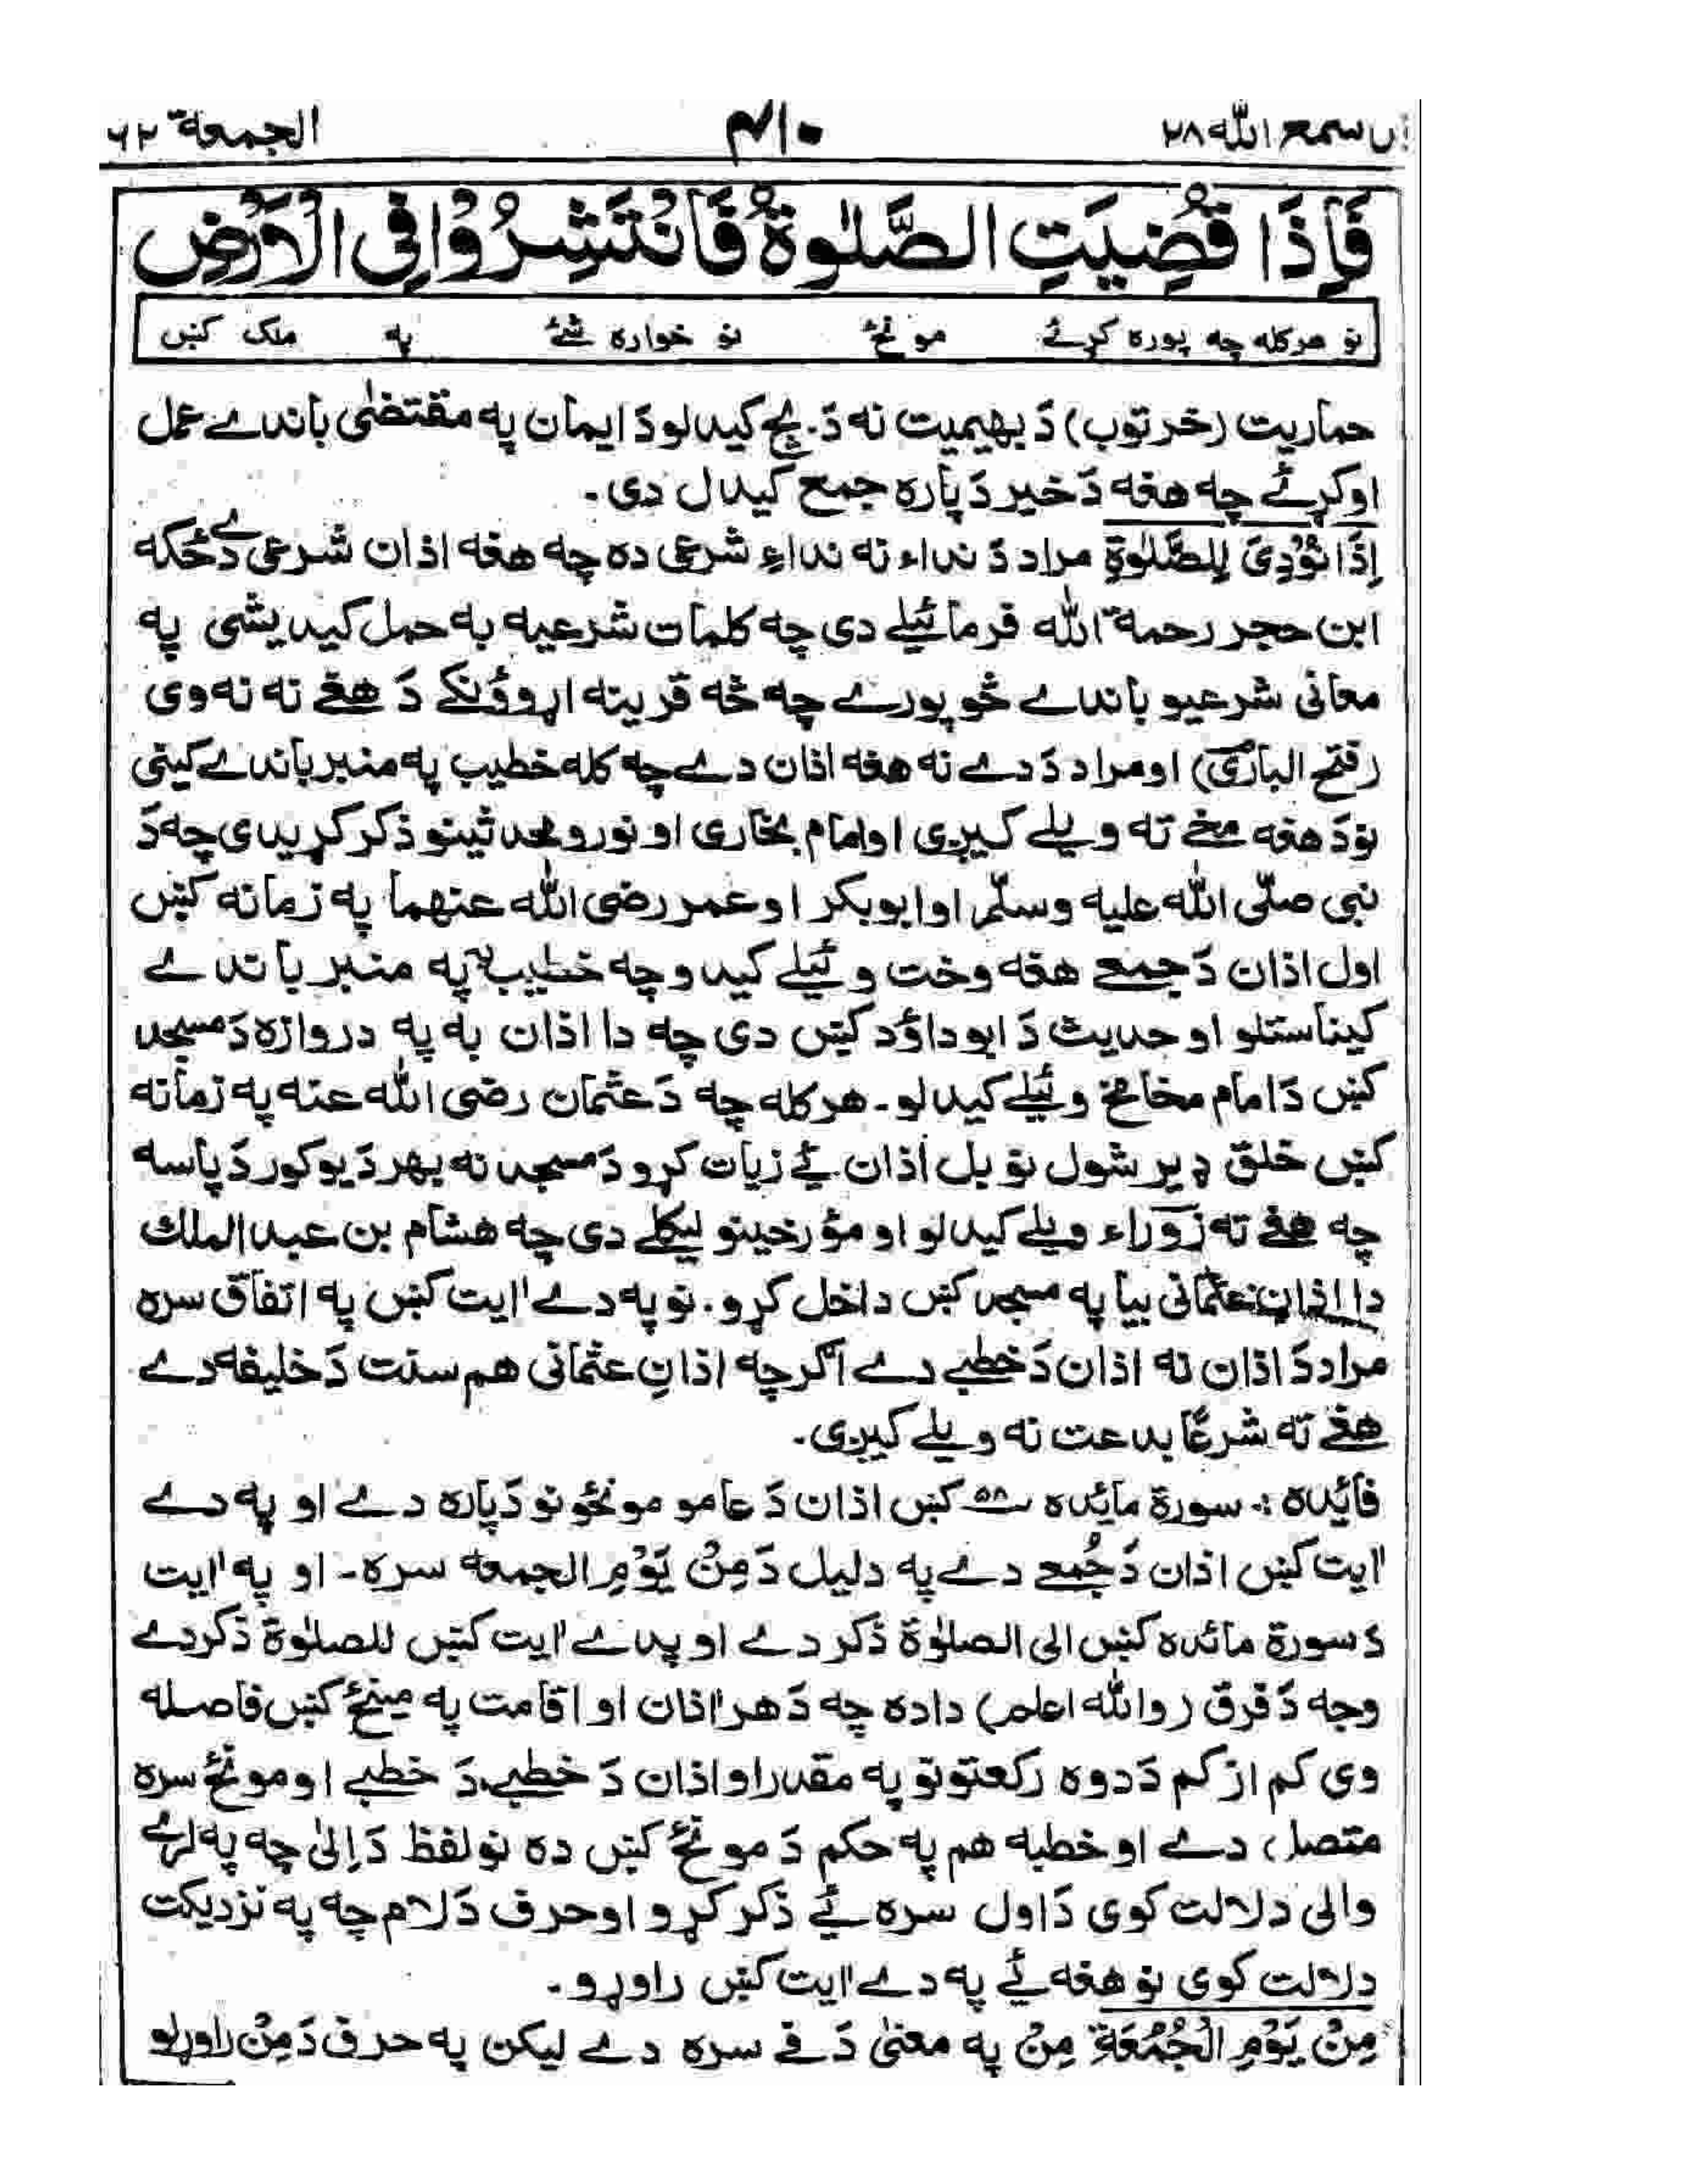 قد سمع الله ۲۸ ۴۱۰ الجمعة ۶۲
فَاِذَا قُضِيَتِ الصَّلٰوةُ فَانْتَشِرُوْا فِى الْاَرْضِ
نو هرکله چه پوره کړے مونځ نو خواره شئ په ملک کښ
حماریت (خر توب) دَ بهیمیت نه دَ بچ کیدلو دَ ایمان په مقتضٰی باندے عمل
اوکړئے چه هغه دَ خیر دَ پاره جمع کیدال دی۔
اِذَا نُوْدِىَ لِلصَّلٰوةِ مراد دَ نداء نه نداءِ شرعی ده چه هغه اذان شرعی دے ځکه
ابن حجر رحمة الله فرمائیلے دی چه کلمات شرعیه به حمل کیدیشی په
معانی شرعیو باندے څو پورے چه څه قرینه اړوؤنکے دَ هغے نه نه وی
(فتح الباری) او مراد دَ دے نه هغه اذان دے چه کله خطیب په منبر باندے کینی
نو دَ هغه مخے ته ویلے کیږی او امام بخاری او نورو محدثینو ذکر کړیدی چه دَ
نبی صلّی الله علیه وسلّم او ابوبکر او عمر رضی الله عنهما په زمانه کښ
اول اذان دَ جمعے هغه وخت وئیلے کیدو چه خطیب به په منبر باندے
کیناستلو او حدیث دَ ابوداؤد کښ دی چه دا اذان به په دروازه دَ مسجد
کښ دَ امام مخامخ وئیلے کیدلو۔ هرکله چه دَ عثمان رضی الله عنه په زمانه
کښ خلق ډیر شول نو بل اذان ئے زیات کړو دَ مسجد نه بهر دَ یو کور دَ پاسه
چه هغے ته زوراء ویلے کیدلو او مؤرخینو لیکلے دی چه هشام بن عبدالملك
دا اذان عثمانی بیا په مسجد کښ داخل کړو۔ نو په دے اٰیت کښ په اتفاق سره
مراد دَ اذان نه اذان دَ خطبے دے اگرچه اذانِ عثمانی هم سنت دَ خلیفه دے
هغے ته شرعًا بدعت نه ویلے کیږی۔
فائده :۔ سورة مائده ۵۸ کښ اذان دَ عامو مونځونو دَ پاره دے او په دے
اٰیت کښ اذان دَ جُمعے دے په دلیل دَ مِنْ يَوْمِ الجمعه سره۔ او په اٰیت
دَ سورة مائده کښ الی الصلٰوة ذکر دے او پدے اٰیت کښ للصلٰوة ذکر دے
وجه دَ فرق (والله اعلم) داده چه دَ هر اذان او اقامت په مینځ کښ فاصله
وی کم از کم دَ دوه رکعتونو په مقدار او اذان دَ خطبے دَ خطبے او مونځ سره
متصل دے او خطبه هم په حکم دَ مونځ کښ ده نو لفظ دَ اِلٰی چه په لرے
والی دلالت کوی دَ اول سره ئے ذکر کړو او حرف دَ لام چه په نزدیکت
دلالت کوی نو هغه ئے په دے اٰیت کښ راوړو۔
مِنْ يَوْمِ الْجُمُعَةِ مِنْ په معنٰی دَ فے سره دے لیکن په حرف دَ مِنْ راوړلو